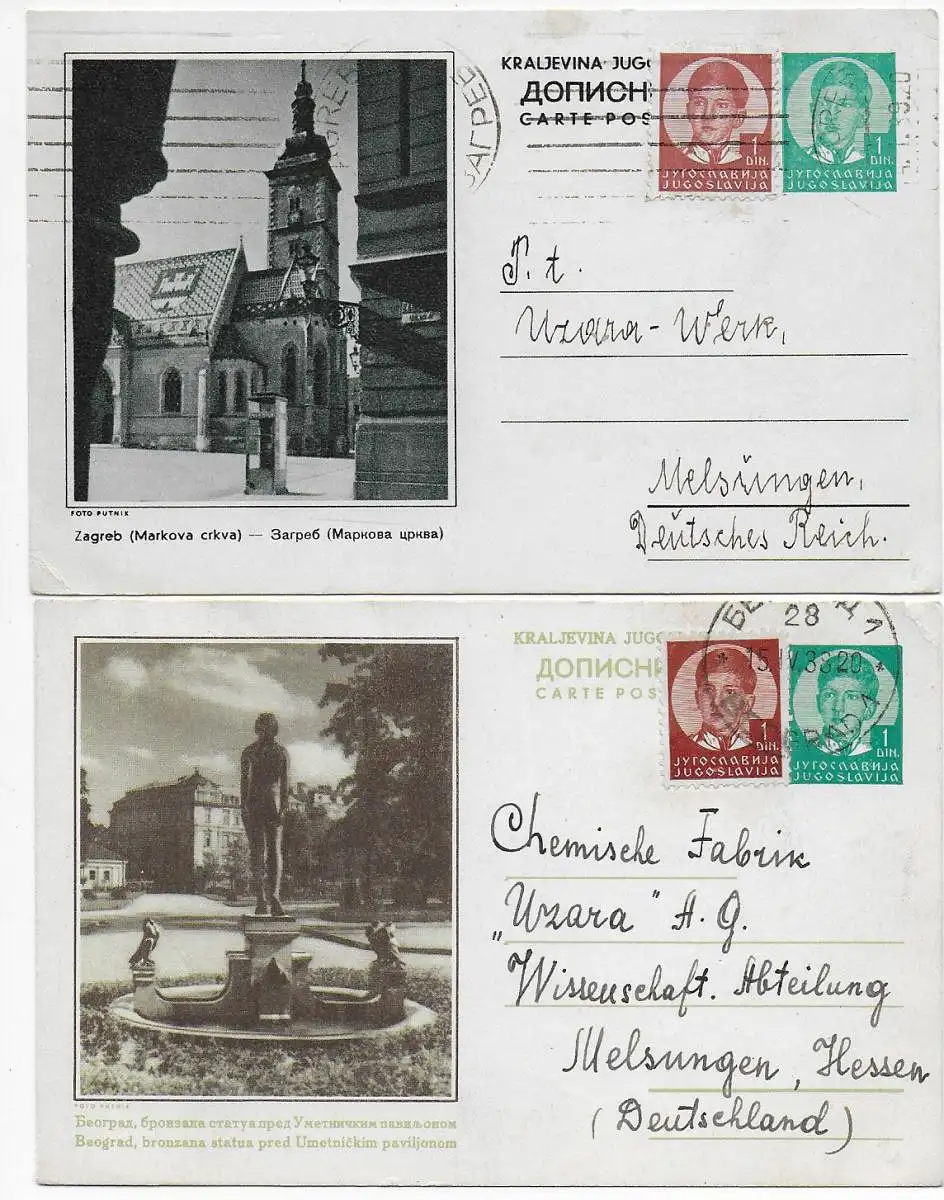 KRALJEVINA JUGO
ДОПИСН
CARTE POS
ЗАГРЕБ
1
DIN.
ЈУГОСЛАВИЈА
JUGOSLAVIJA
1
DIN.
ЈУГОСЛАВИЈА
JUGOSLAVIJA
P. t.
Uzara-Werk,
Melsungen,
Deutsches Reich.
FOTO PUTNIK
Zagreb (Markova crkva) — Загреб (Маркова црква)
KRALJEVINA JUGO
ДОПИСН
CARTE POS
28
15.IV.38 20
1
DIN.
ЈУГОСЛАВИЈА
JUGOSLAVIJA
1
DIN.
ЈУГОСЛАВИЈА
JUGOSLAVIJA
Chemische Fabrik
„Uzara" A. G.
Wissenschaft. Abteilung
Melsungen, Hessen
(Deutschland)
FOTO PUTNIK
Београд, бронзана статуа пред Уметничким павиљоном
Beograd, bronzana statua pred Umetničkim paviljonom